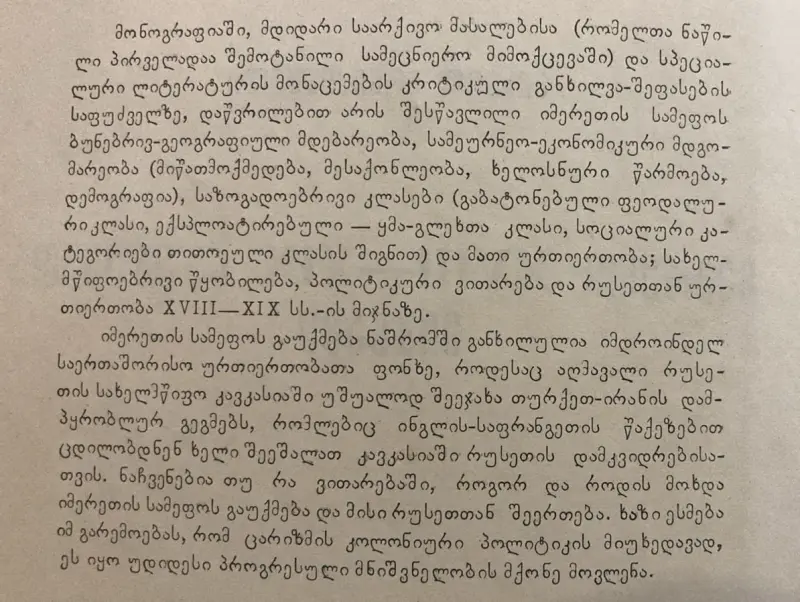 მონოგრაფიაში, მდიდარი საარქივო მასალებისა (რომელთა ნაწი-
ლი პირველადაა შემოტანილი სამეცნიერო მიმოქცევაში) და სპეცია-
ლური ლიტერატურის მონაცემების კრიტიკული განხილვა-შეფასების
საფუძველზე, დაწვრილებით არის შესწავლილი იმერეთის სამეფოს
ბუნებრივ-გეოგრაფიული მდებარეობა, სამეურნეო-ეკონომიკური მდგო-
მარეობა (მიწათმოქმედება, მესაქონლეობა, ხელოსნური წარმოება,
დემოგრაფია), საზოგადოებრივი კლასები (გაბატონებული ფეოდალუ-
რი კლასი, ექსპლოატირებული — ყმა-გლეხთა კლასი, სოციალური კა-
ტეგორიები თითოეული კლასის შიგნით) და მათი ურთიერთობა; სახელ-
მწიფოებრივი წყობილება, პოლიტიკური ვითარება და რუსეთთან ურ-
თიერთობა XVIII—XIX სს.-ის მიჯნაზე.
იმერეთის სამეფოს გაუქმება ნაშრომში განხილულია იმდროინდელ
საერთაშორისო ურთიერთობათა ფონზე, როდესაც აღმავალი რუსე-
თის სახელმწიფო კავკასიაში უშუალოდ შეეჯახა თურქეთ-ირანის დამ-
პყრობლურ გეგმებს, რომლებიც ინგლის-საფრანგეთის წაქეზებით
ცდილობდნენ ხელი შეეშალათ კავკასიაში რუსეთის დამკვიდრებისა-
თვის. ნაჩვენებია თუ რა ვითარებაში, როგორ და როდის მოხდა
იმერეთის სამეფოს გაუქმება და მისი რუსეთთან შეერთება. ხაზი ესმება
იმ გარემოებას, რომ ცარიზმის კოლონიური პოლიტიკის მიუხედავად,
ეს იყო უდიდესი პროგრესული მნიშვნელობის მქონე მოვლენა.